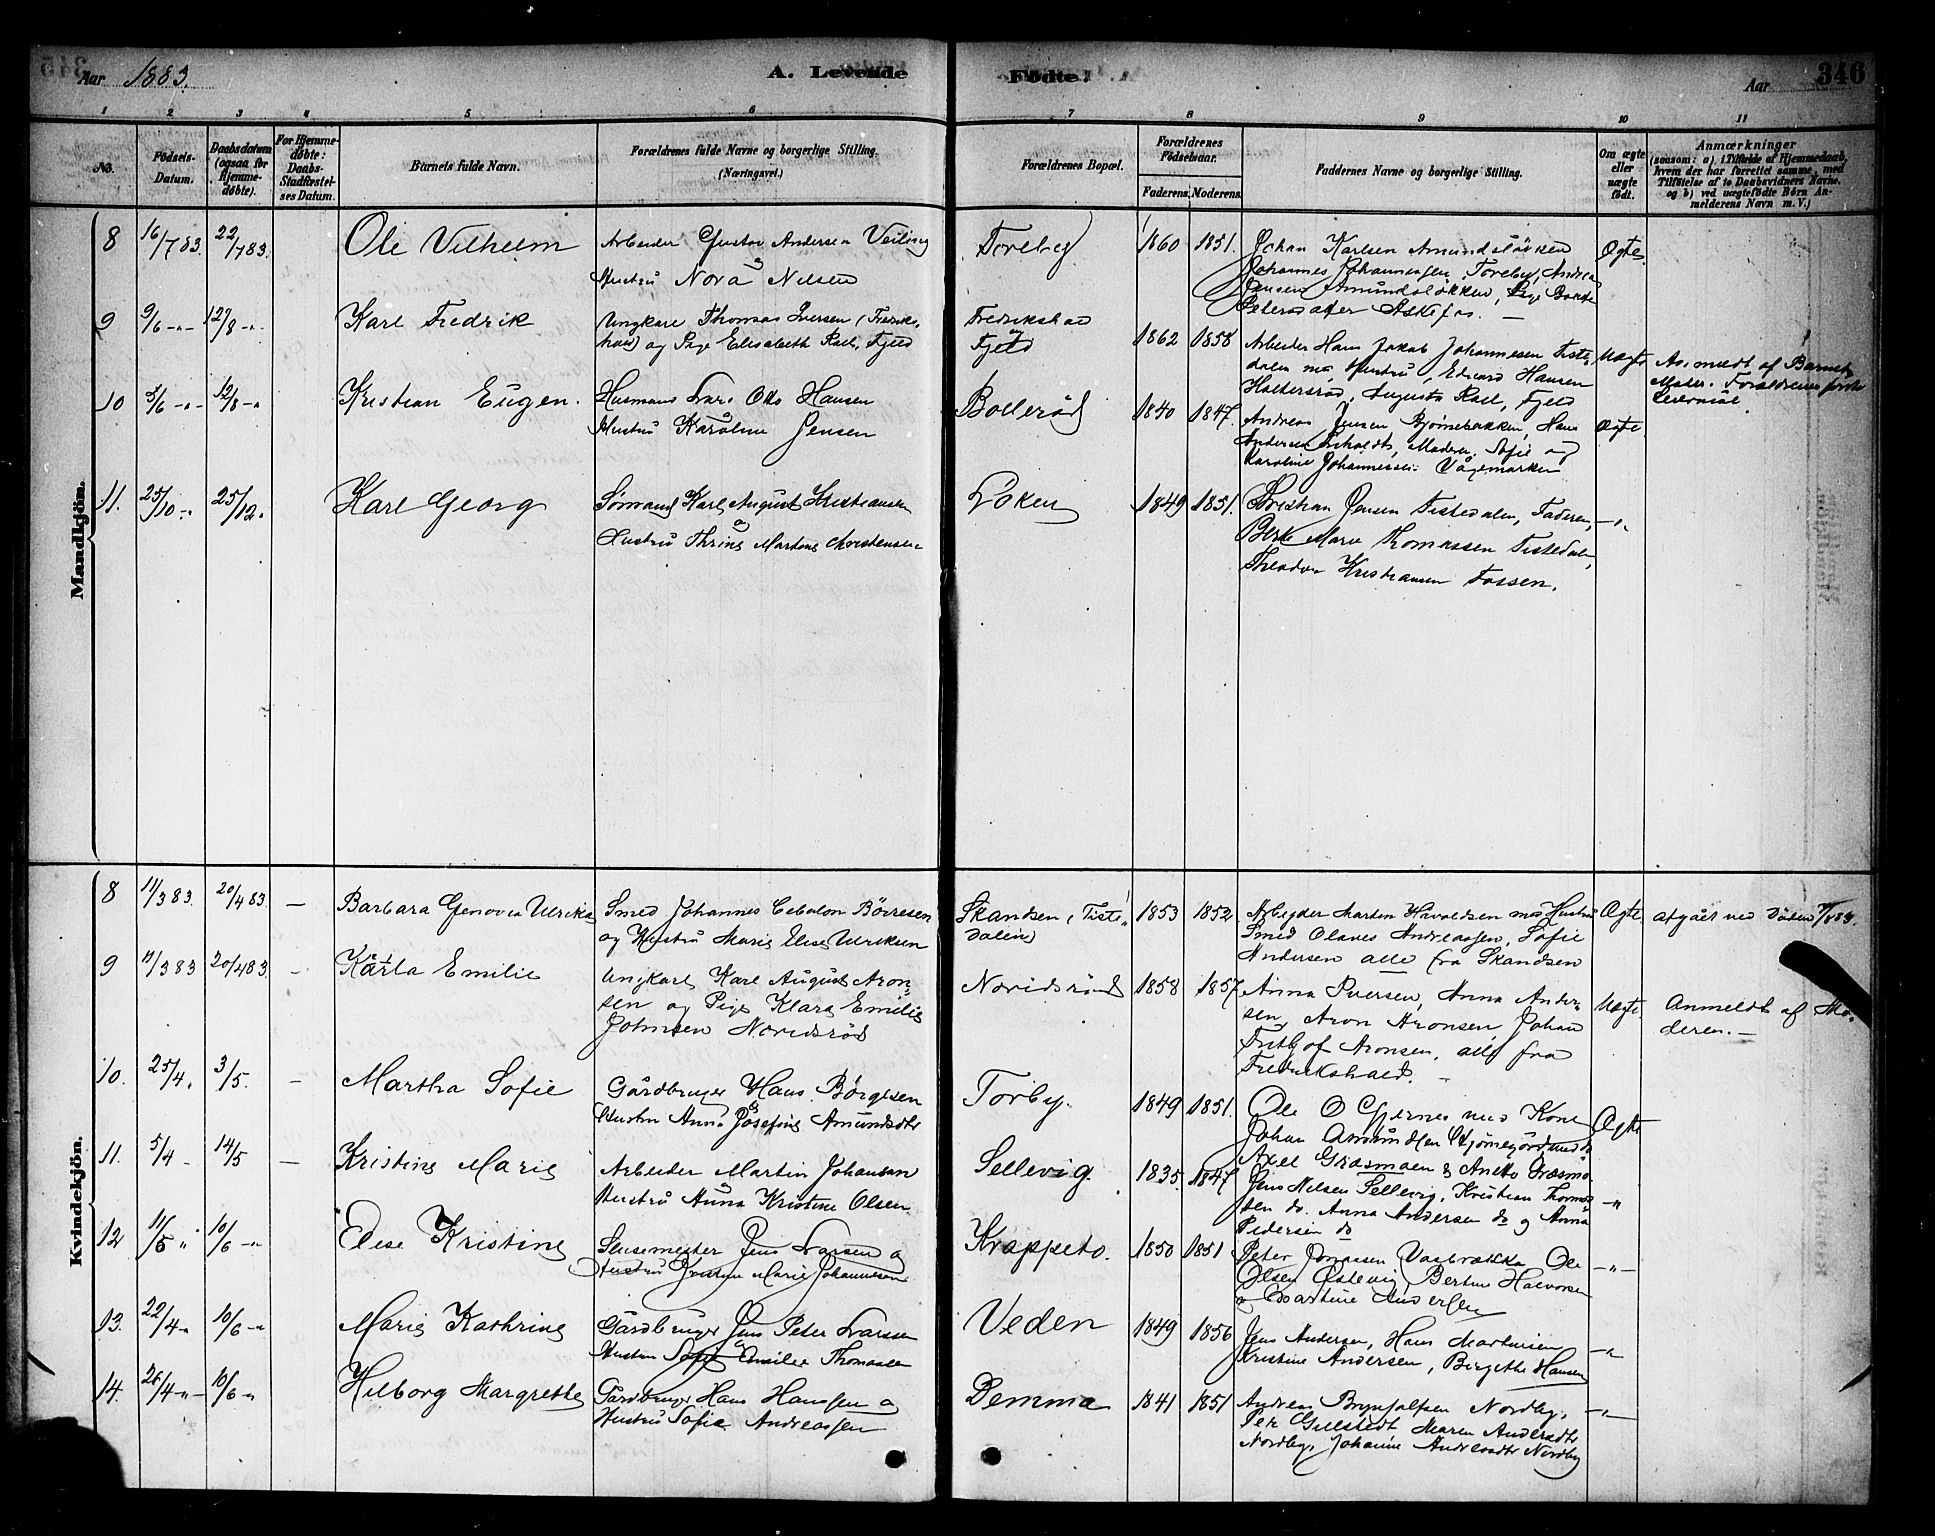 Aar 1883.
A. Levende Fødte.
Aar
346
1 2 3 4 5 6 7 8 9 10 11
No.
Fødsels-Datum.
Daabsdatum (ogsaa for Hjemme-døbte).
For Hjemme-døbte: Daabs-Stadfæstel-ses Datum.
Barnets fulde Navn.
Forældrenes fulde Navne og borgerlige Stilling.
(Næringsvei.)
Forældrenes Bopæl.
Forældrenes Fødselsaar.
Faderens. Moderens.
Faddernes Navne og borgerlige Stilling.
Om ægte eller uægte født.
Anmærkninger
(saasom: a) i Tilfælde af Hjemmedaab, hvem der har forrettet samme, med Tilføielse af to Daabsvidners Navne, og b) ved uægtefødte Børn An-melderens Navn m. V.)
Mandkjön.
8 16/7 83. 22/7 83. Ole Vilhelm
Arbeider Gustav Andersen Veiling
Hustru Nora Nilsen
Toreby 1860 1851.
Johan Karlsen Amundsløkken
Johannes Johannessen, Toreby, Andrea
Jensen Amundsløkken, Pige
Petersdatter
Ægte.
9 9/6 -"- 12/8 -"- Karl Fredrik
Ungkarl Thomas Iversen (Fredriks-
hald) og Pige Elisabeth
Fredrikshald
og
1862 1858
Arbeider Hans Jakob Johannesen Tiste-
dalen m. Hustru, Edvard Hansen
Augusta
Uægte
Anmeldt af Barnets
Moder. Forældrenes første
Leiermaal
10 3/6 -"- 12/8 -"- Kristian Eugen.
Husmand Lars Otto Hansen
Hustru Karoline Jensen
Bollerød 1840 1847.
Andreas Jensen Bjørnebakken, Hans
Andersen Moderen, Sofie og
Karoline Johannessen
Ægte.
11. 25/10 -"- 25/12. Karl Georg
Sømand Karl August Kristiansen
Hustru Thrine Martine Christensen
Løken 1849 1851.
Kristian Jensen Tistedalen, Faderen, -"-
Marie Thomassen Tistedalen,
Theodor Kristiansen Fossen.
Kvindekjön.
8 11/3 83. 20/4 83. — Barbara Genovea Ulrika
Smed Johannes Børresen
og Hustru Marie Elise Ulriksen
Skandsen (Tiste-
dalen)
1853 1852
Arbeider Martin Havoldsen med Hustru
Smed Olaves Andreassen, Sofie
Andersen alle fra Skandsen
Ægte.
afgået ved Døden
9 11/3 83 20/4 83 - Karla Emilie
Ungkarl Karl August Aron-
sen og Pige Klara Emilie
Johnsen Noridsrød
Noridsrød 1858 1857
Anna Iversen, Anna Ander-
sen, Aron Aronsen, Johan
Fritjof Aronsen, alle fra
Fredrikshald.
Uægte.
Anmeldt af Mo-
deren.—
10. 25/4. 3/5. — Martha Sofie
Gårdbruger Hans Børgesen
Hustru Anna Josefine Amundsdtr
Torby. 1849 1851.
Ole O Gjernes med Kone
Johan Amundsen
Axel Græsmoen & Anette
Ægte
11. 5/4 - 14/5 — Kristine Marie
Arbeider Martin Johansen
Hustru Anna Kristine Olsen.
Sellevig. 1835. 1847
Jens Nilsen Sellevig, Kristian Thomas-
sen do. Anna Andersen do og Anna
Pedersen do
-"-
12 11/5 " 10/6 -"- Elise Kristine
Slusemester Jens Larsen og
Hustru Marie Johannesen
Krappeto. 1850 1851
Peter Jonassen Ole
Olsen Østevig, Bertine Halvorsen
og Martine Andersen
-"-
13. 22/4 -"- 10/6 -"- Marie Kathrine
Gårdbruger Jens Peter Larsen
Hustru Emilie Thomassen
Veden 1849 1856
Jens Andersen, Hans Martinsen
Kristine Andersen, Birgitte Hansen
-"-
14. 26/4 -"- 10/6 -"- Hilborg Margrethe
Gårdbruger Hans Hanssen og
Hustru Sofie Andreassen
Demma 1841 1851
Andreas Brynjolfsen Nordby,
Per Gullstedt Maren Andersdtr
Nordby, Johanne Andersdtr Nordby
-"-